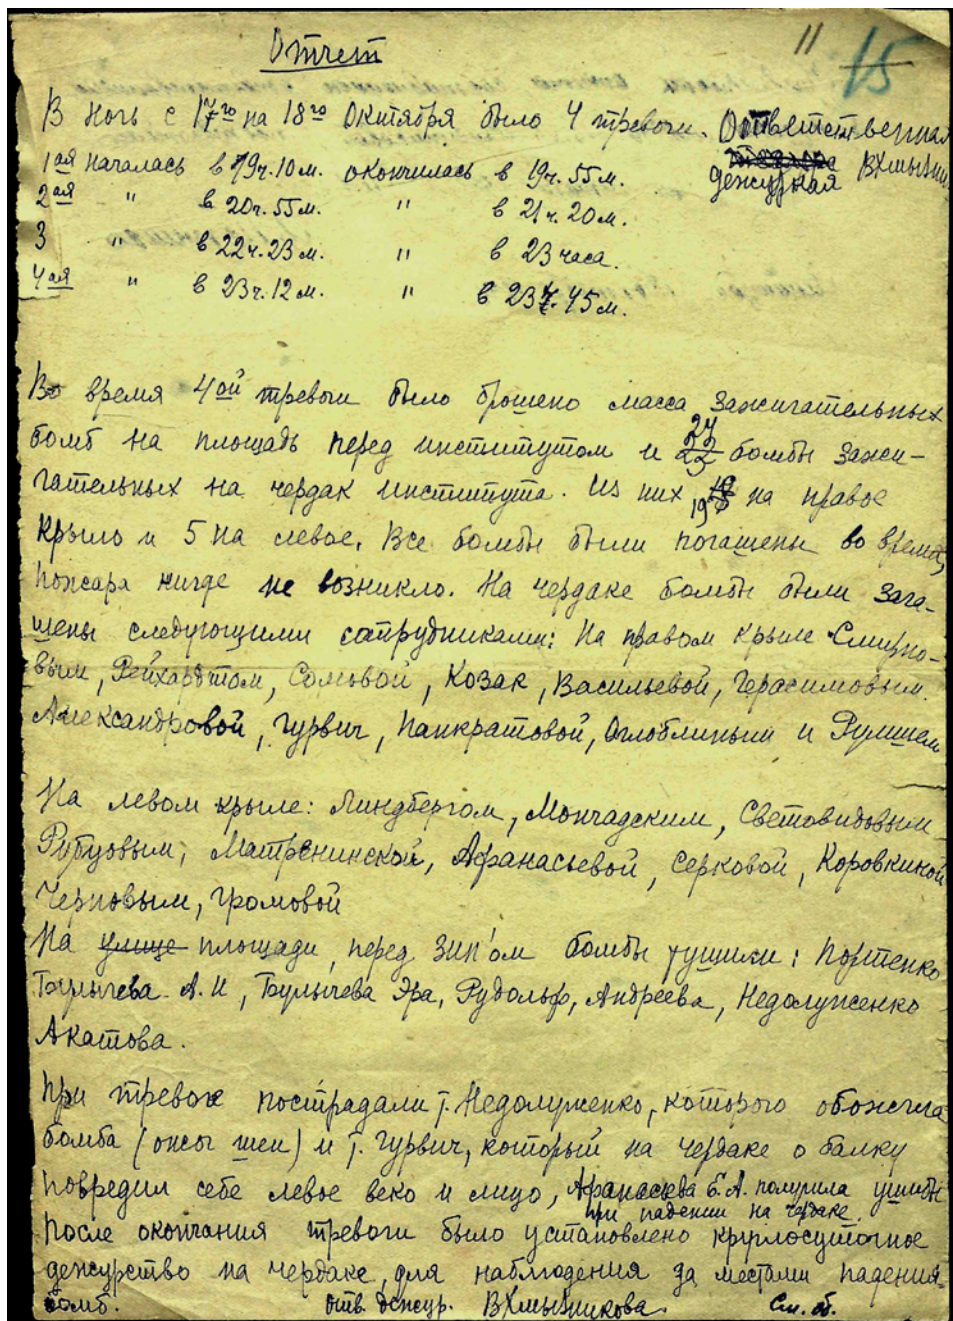 11 15
Отчет
В ночь с 17го на 18го Октября было 4 тревоги. Ответственная
дежурная
1ая началась в 19ч. 10м. окончилась в 19ч. 55м.
2ая " в 20ч. 55м. " в 21ч. 20м.
3 " в 22ч. 23м. " в 23 часа.
4ая " в 23ч. 12м. " в 23ч. 45м.
Во время 4ой тревоги было брошено масса зажигательных
бомб на площадь перед институтом и 24 бомбы зажи-
гательных на чердак института. Из них 19 на правое
крыло и 5 на левое. Все бомбы были погашены во время,
пожара нигде не возникло. На чердаке бомбы были зага-
шены следующими сотрудниками: На правом крыле Смирно-
вым, Рейхардтом, Сомовой, Козак, Васильевой, Герасимовым
Александровой, Гурвич, Панкратовой, Оглоблиным и
На левом крыле: Линдбергом, Мончадским, Световидовым
Рубцовым, Матренинской, Афанасьевой, Серковой, Коровкиной
Черновым, Громовой
На улице площади, перед ЗИН'ом бомбы тушили: Портенко
Булычева А.И, Булычева Эра, Рудольф, Андреева, Недолуженко
Акатова.
При тревоге пострадали т. Недолуженко, которого обожгла
бомба (ожог шеи) и т. Гурвич, который на чердаке о балку
повредил себе левое веко и лицо, Афанасьева Е.А. получила ушибы
при падении на чердаке.
После окончания тревоги было установлено круглосуточное
дежурство на чердаке, для наблюдения за местами падения
бомб. отв. дежур. В Хмызникова. См. об.